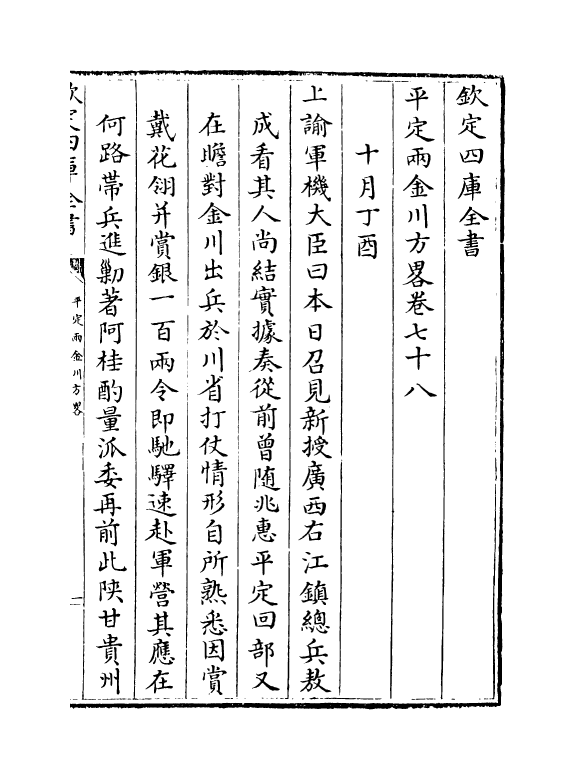 欽定四庫全書
平定兩金川方畧卷七十八
十月丁酉
上諭軍機大臣曰本日召見新授廣西右江鎮總兵敖
成看其人尚結實據奏從前曾随兆惠平定回部又
在瞻對金川出兵於川省打仗情形自所熟悉因賞
戴花翎并賞銀一百兩令即馳驛速赴軍營其應在
何路帶兵進勦著阿桂酌量派委再前此陝甘貴州
欽定四庫全書
平定兩金川方畧
一